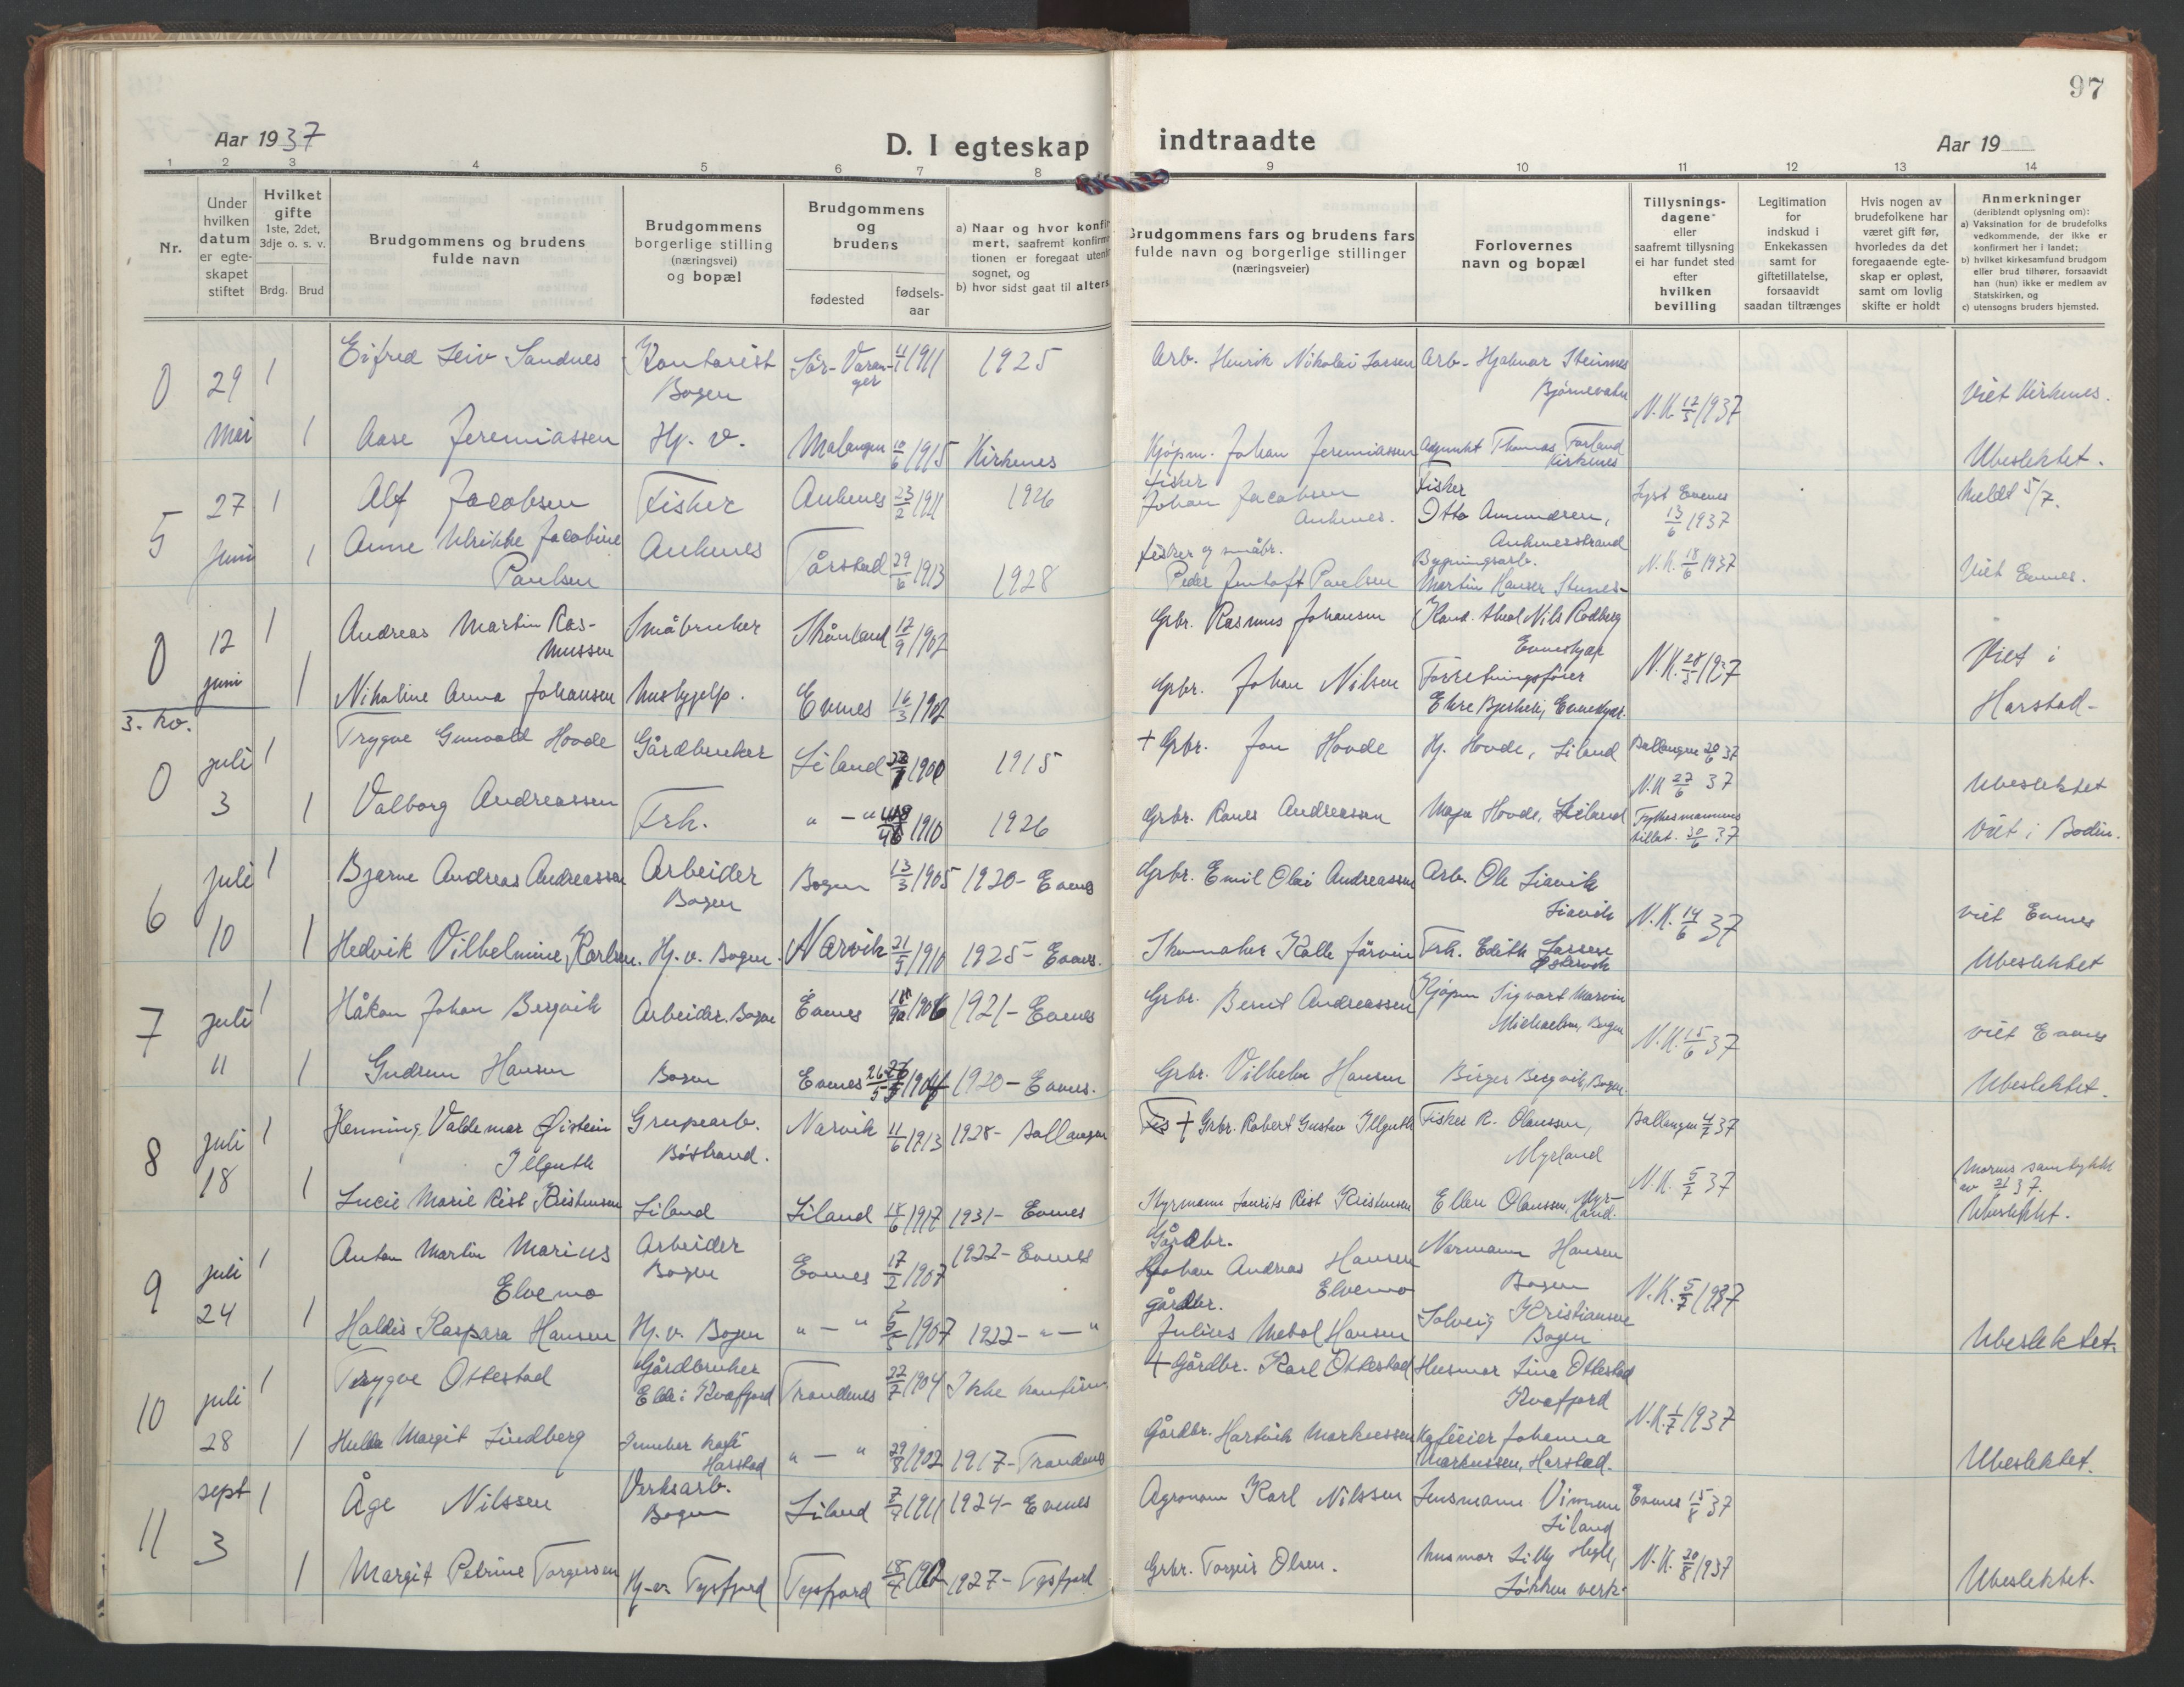 97
Aar 1937
D. I egteskap indtraadte
Aar 19
1 2 3 4 5 6 7 8 9 10 11 12 13 14
Nr.
Under hvilken datum er egte-skapet stiftet
Hvilket gifte
1ste, 2det, 3dje o. s. v.
Brdg. Brud
Brudgommens og brudens fulde navn
Brudgommens borgerlige stilling (næringsvei) og bopæl
Brudgommens og brudens
fødested
fødsels-aar
a) Naar og hvor konfir
mert, saafremt konfirma
tionen er foregaat utenfo
sognet, og
b) hvor sidst gaat til alters
Brudgommens fars og brudens fars
fulde navn og borgerlige stillinger
(næringsveier)
Forlovernes
navn og bopæl
Tillysnings-
dagene
eller
saafremt tillysning
ei har fundet sted
efter
hvilken
bevilling
Legitimation
for
indskud i
Enkekassen
samt for
giftetillatelse,
forsaavidt
saadan tiltrænges
Hvis nogen av
brudefolkene har
været gift før,
hvorledes da det
foregaaende egte-
skap er opløst,
samt om lovlig
skifte er holdt
Anmerkninger
(deriblandt oplysning om):
a) Vaksination for de brudefolks
vedkommende, der ikke er
konfirmert her i landet;
b) hvilket kirkesamfund brudgom
eller brud tilhører, forsaavidt
han (hun) ikke er medlem av
Statskirken, og
c) utensogns bruders hjemsted.
0 29 1 Eifred Leiv Sandnes Kontorist Bogen Sør-Varanger 4/1 1911 1925 Arb. Henrik Nikolai Larsen Arb. Hjalmar Steinnes Bjørnevatn N.K. 12/5 1937 Viet Kirkenes.
Mai 1 Aase Jeremiassen Hj. v. Malangen 10/6 1915 Kirkenes Kjøpm. Johan Jeremiassen Adjunkt Thomas Forland Kirkenes Ubeslektet.
5 27 1 Alf Jacobsen Fisker Ankenes 23/2 1911 1926 Fisker Johan Jacobsen Ankenes. Fisker Otto Amundsen, Ankenesstrand Lyst Evenes 13/6 1937 Meldt 5/7.
Juni 1 Anne Ulrikke Jacobine Paulsen Ankenes Tårstad 29/6 1913 1928 Fisker og småbr. Peder Jentoft Paulsen Bygningsarb. Martin Hansen Stunes- N.K. 18/6 1937 Viet Evenes.
0 12 1 Andreas Martin Rasmussen Småbruker Skånland 12/9 1902 Grbr. Rasmus Johansen Kand. theol Nils Rodberg Evenskjær N.K. 28/5 1937 Viet i
juni 1 Nikoline Anna Johansen hushjelp. Evenes 16/3 1902 Grbr. Johan Nilsen Forretningsfører Ehre Bjerkeli, Evenskjær. Harstad-
3. kv.
0 juli 1 Trygve Gunvald Hovde Gårdbruker Liland 1900 1915 + Grbr. Jon Hovde Hj. Hovde, Liland Ballangen 20/6 37 N.K 27/6 37 Ubeslektet
3 1 Valborg Andreassen Frk. " — " 1910 1926 Grbr. Ranes Andreassen Maja Hovde, Liland Fylkesmannens tillat. 30/6 37 Viet i Bodin.
6 juli 1 Bjarne Andreas Andreassen Arbeider Bogen Bogen 13/3 1905 1920- Evenes Grbr. Emil Olai Andreassen Arb. Ole Liavik Liavik N.K. 14/6 37 viet Evenes
10 1 Hedvik Vilhelmine Karlsen. Hj. v. Bogen. Narvik 21/9 1910 1925- Evenes. Skomaker Kalle Järvin Frk. Edith Larsen Østervik Ubeslektet
7 juli 1 Håkon Johan Bergvik Arbeider. Bogen Evenes 1906 1921- Evenes Grbr. Bernt Andreassen Kjøpm Sigvart Marvin Michaelsen, Bogen N.K. 15/6 37 viet Evenes
11 1 Gudrun Hansen Bogen Evenes 26/5 1904 1920- Evenes. Grbr. Vilhelm Hansen Birger Bergvik, Bogen. Ubeslektet.
8 juli 1 Henning Valdemar Øistein Illguth Grupearb. Bøstrand. Narvik 11/6 1913 1928- Ballangen + Grbr. Robert Gustav Illguth Fisker R. Olaussen, Myrland Ballangen 4/7 37 N.K. 5/7 37 Morens samtykke av 2/7 37.
18 1 Lucie Marie Rist Kristensen Liland Liland 18/6 1917 1931- Evenes Styrmann Laurits Rist Kristensen Ellen Olaussen, Myrland. Ubeslektet.
9 juli 1 Anton Martin Marius Elvemo Arbeider Bogen Evenes 17/2 1907 1922- Evenes Gårdbr. Johan Andreas Hansen Elvemo Normann Hansen Bogen N.K. 5/7 1937
24 1 Haldis Kaspara Hansen Hj. v. Bogen " — " 1907 1922- " — " gårdbr. Julius Hansen Solveig Kristiansen Bogen Ubeslektet.
10 juli 1 Trygve Ottestad Gårdbruker Elde i Kvæfjord Trondenes 22/7 1904 Ikke konfirm. + Gårdbr. Karl Ottestad Husmor Lina Ottestad Kvæfjord N.K. 1/7 1937
28 1 Hulda Margit Lindberg Innehar kafé Harstad " — " 29/8 1902 1917- Trondenes Gårdbr. Hartvik Markussen Kaféeier Johanna Markussen, Harstad. Ubeslektet.
11 sept 1 Åge Nilssen Verksarb. Bogen Liland 1911 1924- Evenes Agronom Karl Nilssen Lensmann Vinnem Liland Evenes 15/8 37
3 1 Margit Petrine Torgersen Hj. v. Tysfjord Tysfjord 18/4 1927- Tysfjord Grbr. Torgeir Olsen. husmor Lilly Løkken verk. N.K. 20/8 1937 Ubeslektet.